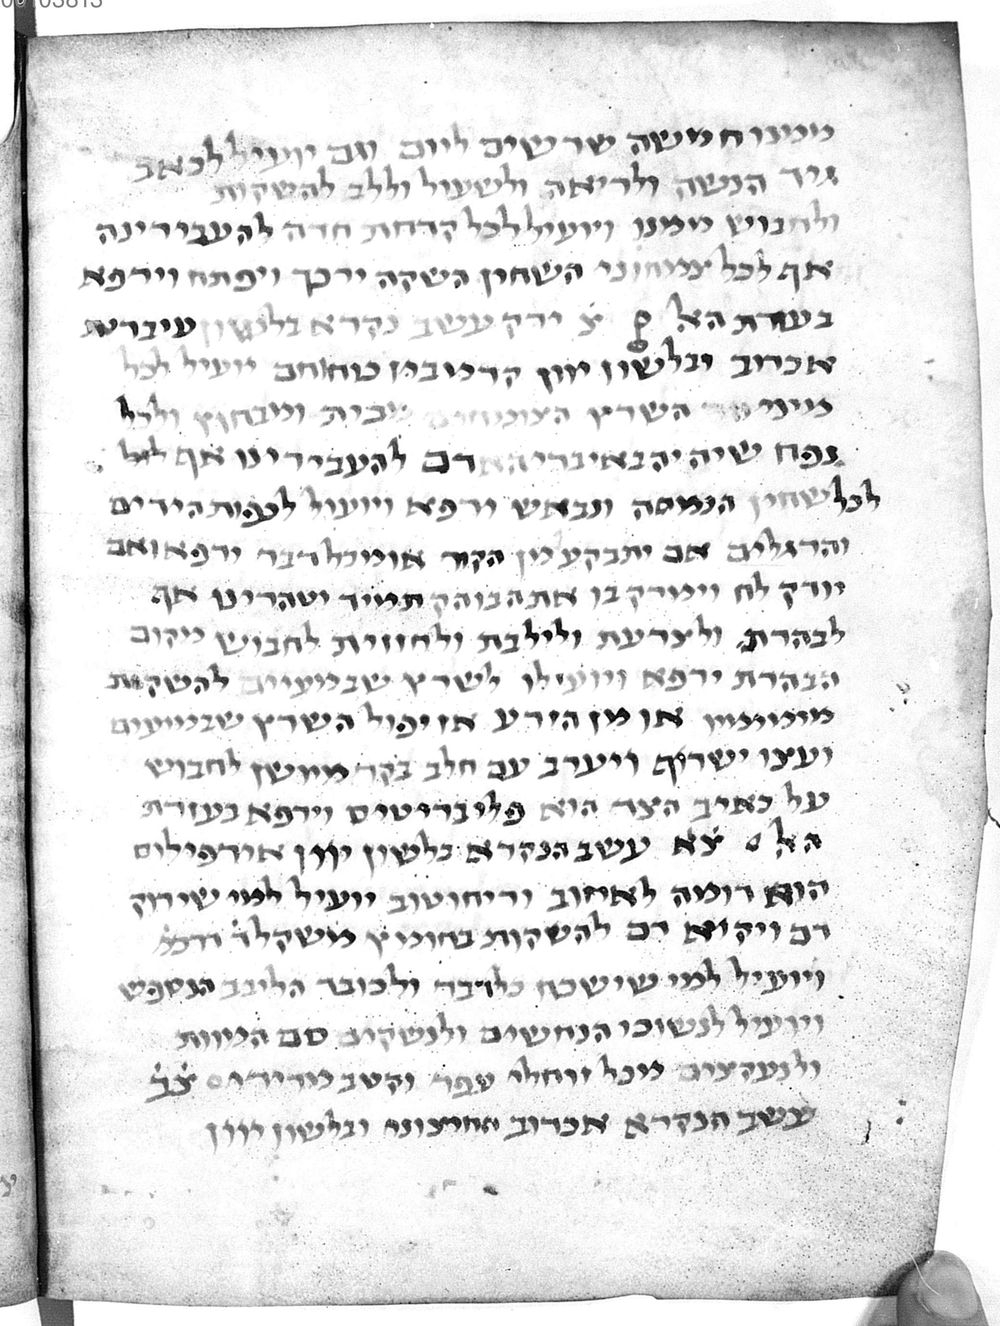 ממנו חמשה שרשים ליום וגם יועיל לכאב
גיד הנשה ולריאה ולשעול וללב להשקות
ולחבוש ממנו ויועיל לכל קדחת חדה להעבירינה
אף לכל צמחוני השחין השקה ירכך ויפתח וירפא
בעזרת האל צ ירק עשב נקרא בלשון עיברית
אכרוב ובלשון יוון קרמבין כוחותם יועיל לכל
מיני השרץ הצומחים מבית ומבחוץ ולכל
נפח שיהיה באיברי האדם להעבירינו אף לכל
לכל שחין הנמסה ונבאש ירפא ויועיל לכפות הידים
והרגלים אם יתבקע מן הקור או מכל דבר ירפא ואם
יודק לח וימרק בו את הבוהק תמיד יטהרינו אף
לבהרת ולצרעת ולילבת ולחזזית לחבוש מקום
הבהרת ירפא ויועילו לשרץ שבמעיים להשקות
ממימיו או מן הזרע אז יפול השרץ שבמעים
ועצו ישרוף ויערב עם חלב בקר מיושן לחבוש
על כאיב הצד הוא פליבריטיס וירפא בעזרת
האל צא עשב הנקרא בלשון יוון אירפילוס
הוא דומה לאיזוב וריחו טוב יועיל למי שירוק
דם ויקיא דם להשקות בחומץ משקל ד זוז
ויועיל למי שישכח כל דבר ולכובד הליבב הנטפש
ויועיל לנשוכי הנחשים ולנשקים סם המוות
ולנעקצים מכל זוחלי עפר וקטב מרירי צב
עשב הנקרא אכרוב החיצוני ובלשון יוון